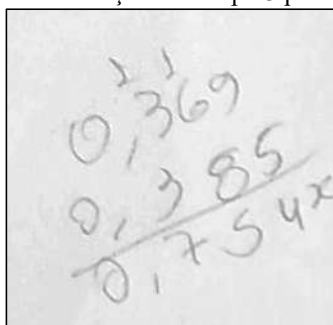 1 1
0,369
0,385
0,754x